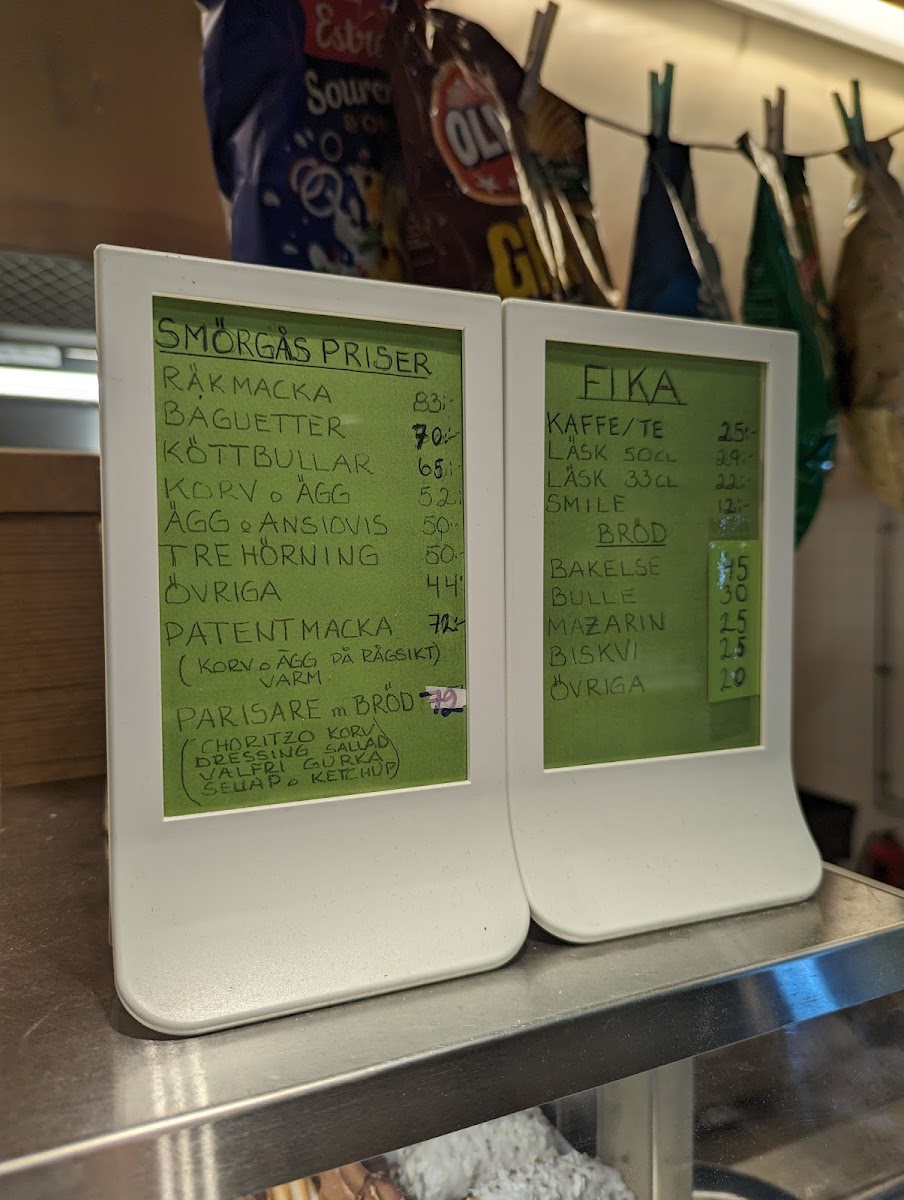 Estre
Soure
OLW
SMÖRGÅS PRISER
RÄKMACKA 83:-
BAGUETTER 70:-
KÖTTBULLAR 65:-
KORV o ÄGG 52:
ÄGG o ANSIOVIS 50:-
TRE HÖRNING 50:-
ÖVRIGA 44:
PATENTMACKA 72:-
(KORV o ÄGG PÅ RÅGSIKT)
VARM
PARISARE m BRÖD 79
(CHORITZO KORV
DRESSING SALLAD
VALFRI GURKA
SENAP o KETCHUP)
FIKA
KAFFE/TE 25:-
LÄSK 50CL 29:-
LÄSK 33CL 22:-
SMILE 12:-
BRÖD
BAKELSE 45
BULLE 30
MAZARIN 25
BISKVI 25
ÖVRIGA 20